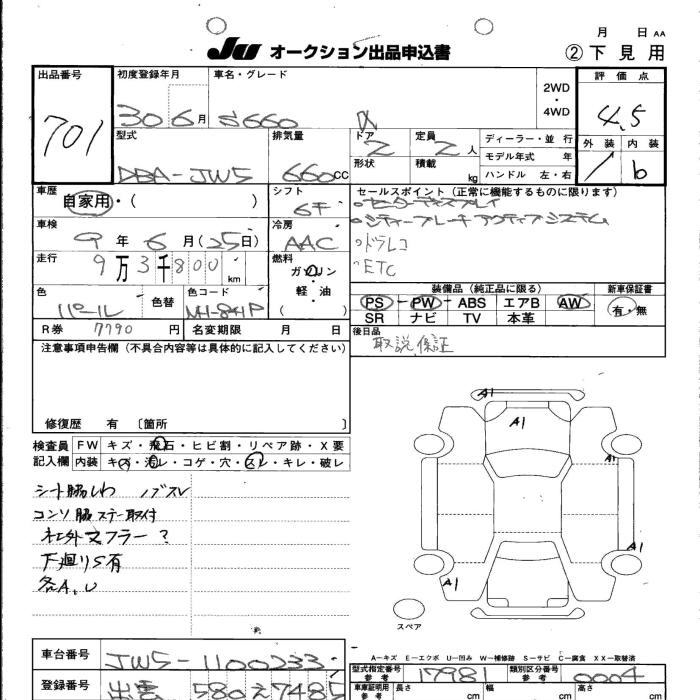 月 日 AA
JU オークション出品申込書 ②下見用
出品番号 初度登録年月 車名・グレード 2WD・4WD 評価点
701 30 6月 S660 α 4.5
型式 排気量 ドア 定員 ディーラー・並行 外装 内装
DBA-JW5 660CC 2 2人 モデル年式 年 b
形状 積載 kg ハンドル 左・右
車歴 自家用・( ) シフト 6F セールスポイント(正常に機能するものに限ります)
○センターディスプレイ
車検 9年6月(25日) 冷房 AAC ○シティーブレーキアクティブシステム
走行 9万3千800km 燃料 ガソリン・軽・油 ( ) ○ドラレコ
○ETC
色 パール 色替 色コード NH-841P 装備品(純正品に限る) 新車保証書
PS-PW-ABS エアB AW 有・無
SR ナビ TV 本革
R券 7790円 名変期限 月 日 後日品
取説 保証
注意事項申告欄(不具合内容等は具体的に記入してください)
修復歴 有 〔箇所 〕
検査員記入欄 FW キズ・飛石・ヒビ割・リペア跡・X要
内装 キズ・汚レ・コゲ・穴・スレ・キレ・破レ
シート脇しわ ノブスレ
コンソ脇ステー取付
社外マフラー?
下廻りS有
各A,U
A1
A1
A1
A1
A1
スペア
A-キズ E-エクボ U-凹み W-補修跡 S-サビ C-腐食 XX-取替済
車台番号 JW5-1100233 型式指定番号 参考 17981 類別区分番号 参考 0004
登録番号 出雲 580え7485 車庫証明用 参考 長さ cm 幅 cm 高さ cm